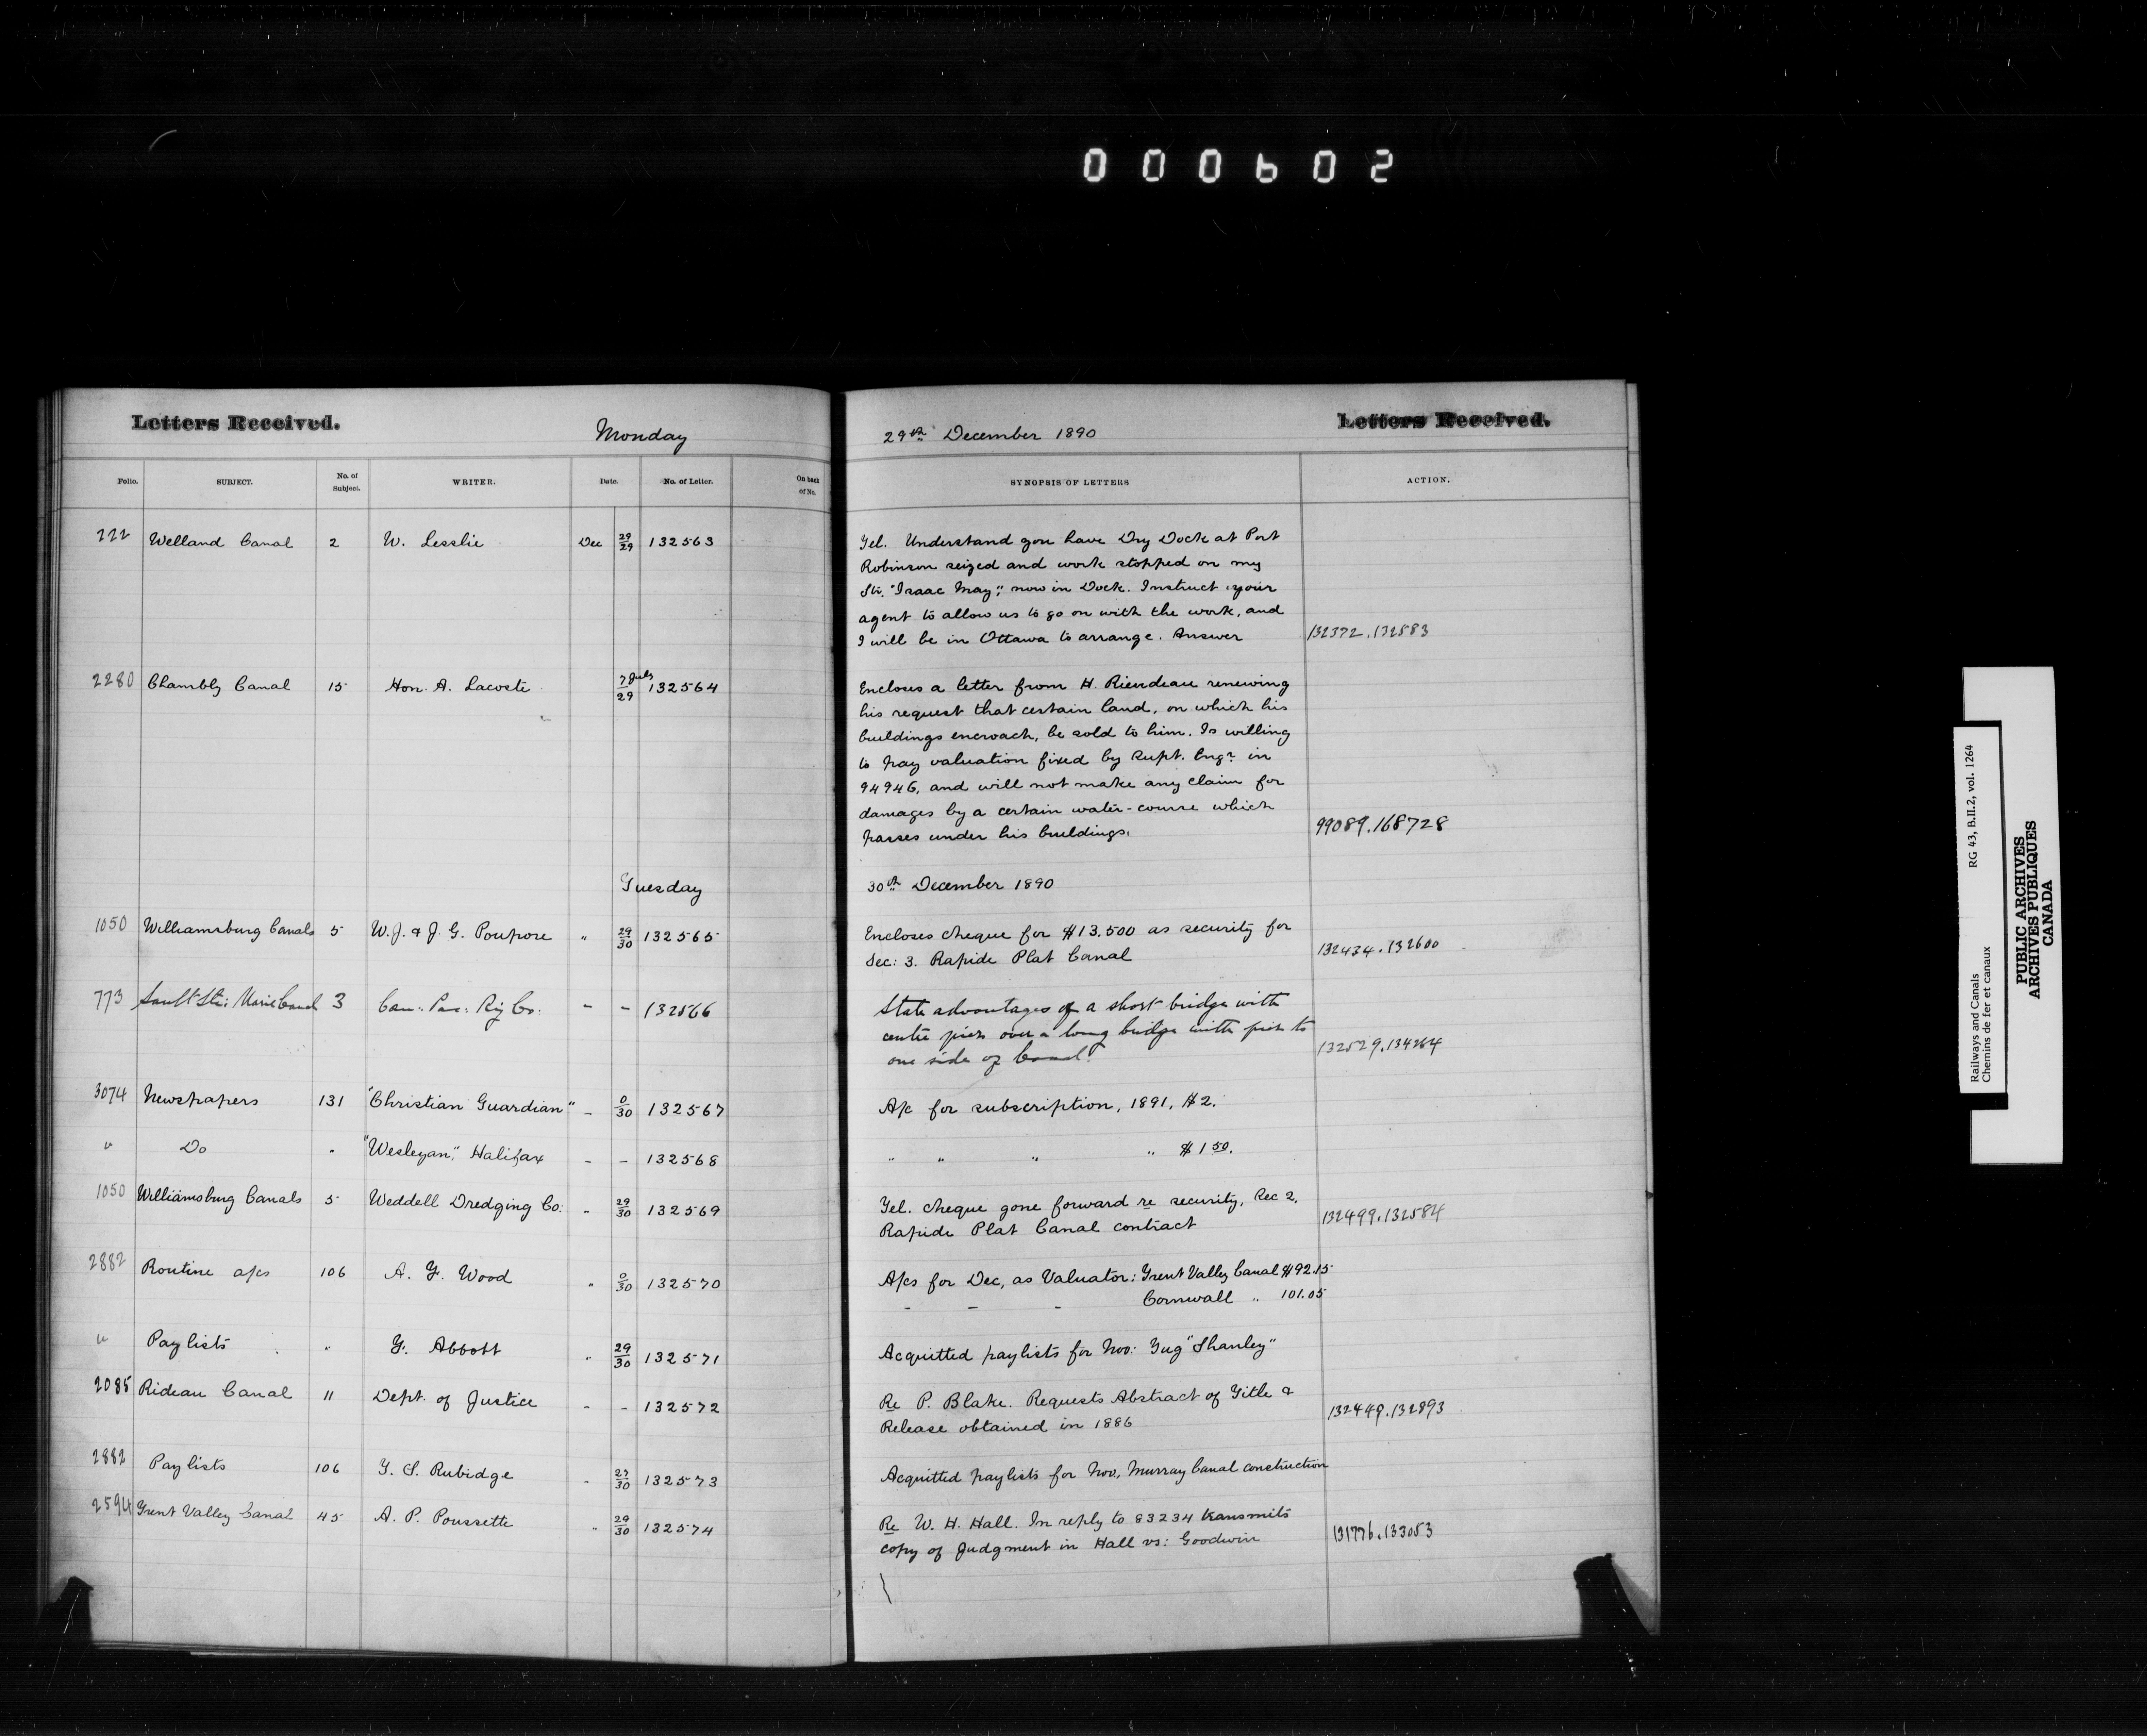 000602
Letters Received.
Monday
29th December 1890
Letters Received.
Folio. SUBJECT. No. of Subject. WRITER. Date. No. of Letter. On back of No. SYNOPSIS OF LETTERS ACTION.
222 Welland Canal 2 W. Lesslie Dec 29/29 132563
Tel. Understand you have Dry Dock at Port
Robinson seized and work stopped on my
Str. "Isaac May", now in Dock. Instruct your
agent to allow us to go on with the work, and
I will be in Ottawa to arrange. Answer 132372.132583
2280 Chambly Canal 15 Hon. A. Lacoste 7 July/29 132564
Encloses a letter from H. Riendeau renewing
his request that certain land, on which his
buildings encroach, be sold to him. Is willing
to pay valuation fixed by Supt. Engr. in
94946, and will not make any claim for
damages by a certain water-course which
passes under his buildings. 99089.168728
Tuesday 30th December 1890
1050 Williamsburg Canals 5 W.J. & J. G. Poupore " 29/30 132565
Encloses cheque for $13.500 as security for
Sec: 3. Rapide Plat Canal 132434.132600
773 Sault Ste: Marie Canal 3 Can: Pac: Ry Co. - - 132566
State advantages of a short bridge with
centre pier over a long bridge with pier to
one side of Canal. 132529.134264
3074 Newspapers 131 "Christian Guardian" - 0/30 132567
A/c for subscription, 1891, $2.
" Do " "Wesleyan", Halifax - - 132568
" " " " $1.50.
1050 Williamsburg Canals 5 Weddell Dredging Co: " 29/30 132569
Tel. Cheque gone forward re security, Sec 2,
Rapide Plat Canal contract 132499.132584
2882 Routine a/cs 106 A. F. Wood " 0/30 132570
A/cs for Dec, as Valuator: Trent Valley Canal $92.15
- - - Cornwall " 101.05
" Paylists " F. Abbott " 29/30 132571
Acquitted paylists for Nov: Tug "Shanley"
2085 Rideau Canal 11 Dept. of Justice - - 132572
Re P. Blake. Requests Abstract of Title &
Release obtained in 1886 132449.132893
2882 Paylists 106 T. S. Rubidge - 27/30 132573
Acquitted paylists for Nov, Murray Canal construction
2594 Trent Valley Canal 45 A. P. Poussette " 29/30 132574
Re W. H. Hall. In reply to 83234 transmits
copy of Judgment in Hall vs: Goodwin 131776.133053
Railways and Canals RG 43, B.II.2, vol. 1264
Chemins de fer et canaux
PUBLIC ARCHIVES
ARCHIVES PUBLIQUES
CANADA